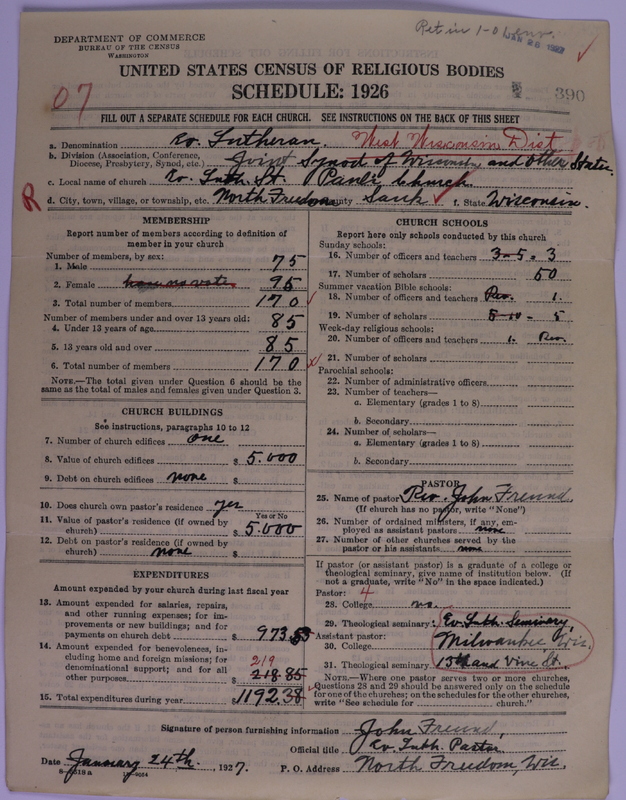 Ret in 1-0
JAN 28 1927
DEPARTMENT OF COMMERCE
BUREAU OF THE CENSUS
WASHINGTON
UNITED STATES CENSUS OF RELIGIOUS BODIES
SCHEDULE: 1926
07
390
FILL OUT A SEPARATE SCHEDULE FOR EACH CHURCH. SEE INSTRUCTIONS ON THE BACK OF THIS SHEET
a. Denomination Ev. Lutheran. West Wisconsin Dist
b. Division (Association, Conference, Diocese, Presbytery, Synod, etc.) Joint Synod of Wisconsin and Other States.
c. Local name of church Ev. Luth. St. Paul's Church
R d. City, town, village, or township, etc. North Freedom County Sauk f. State Wisconsin.
MEMBERSHIP
Report number of members according to definition of member in your church
Number of members by sex:
1. Male 75
2. Female have no vote 95
3. Total number of members 170
Number of members under and over 13 years old:
4. Under 13 years of age 85
5. 13 years old and over 85
6. Total number of members 170
NOTE.—The total given under Question 6 should be the same as the total of males and females given under Question 3.
CHURCH BUILDINGS
See instructions, paragraphs 10 to 12
7. Number of church edifices one
8. Value of church edifices $ 5.000
9. Debt on church edifices none $
10. Does church own pastor's residence yes
Yes or No
11. Value of pastor's residence (if owned by church) $ 5.000
12. Debt on pastor's residence (if owned by church) none $
EXPENDITURES
Amount expended by your church during last fiscal year
13. Amount expended for salaries, repairs, and other running expenses; for improvements or new buildings; and for payments on church debt $ 973.53
14. Amount expended for benevolences, including home and foreign missions; for denominational support; and for all other purposes $ 218.85
219
15. Total expenditures during year $ 1192.38
CHURCH SCHOOLS
Report here only schools conducted by this church
Sunday schools:
16. Number of officers and teachers 3-5. 3
17. Number of scholars 50
Summer vacation Bible schools:
18. Number of officers and teachers Rev. 1.
19. Number of scholars 5-10 - 5
Week-day religious schools:
20. Number of officers and teachers 1. Rev.
21. Number of scholars
Parochial schools:
22. Number of administrative officers
23. Number of teachers—
a. Elementary (grades 1 to 8)
b. Secondary
24. Number of scholars—
a. Elementary (grades 1 to 8)
b. Secondary
PASTOR
25. Name of pastor Rev. John Freund
(If church has no pastor, write "None")
26. Number of ordained ministers, if any, employed as assistant pastors none
27. Number of other churches served by the pastor or his assistants none
If pastor (or assistant pastor) is a graduate of a college or theological seminary, give name of institution below. (If not a graduate, write "No" in the space indicated.)
Pastor: 4
28. College no
29. Theological seminary Ev. Luth. Seminary
Assistant pastor:
30. College Milwaukee, Wis.
31. Theological seminary 13th and Vine St.
NOTE.—Where one pastor serves two or more churches, Questions 28 and 29 should be answered only on the schedule for one of the churches; on the schedules for the other churches, write "See schedule for ________ church."
Signature of person furnishing information John Freund,
Official title Ev. Luth. Pastor
Date January 24th., 1927. P. O. Address North Freedom, Wis.